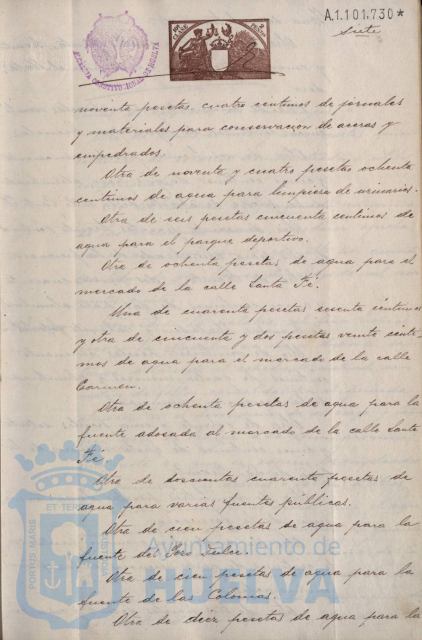 A.1.101.730*
siete
noventa pesetas, cuatro centimos de jornales
y materiales para conservacion de aceras y
empedrados.
Otra de noventa y cuatro pesetas ochenta
centimos de agua para limpieza de urinarios.
Otra de seis pesetas cincuenta centimos de
agua para el parque deportivo.
Otra de ochenta pesetas de agua para el
mercado de la calle Santa Fé.
Una de cuarenta pesetas sesenta centimos
y otra de cincuenta y dos pesetas veinte centi-
mos de agua para el mercado de la calle
Carmen.
Otra de ochenta pesetas de agua para la
fuente adosada al mercado de la calle Santa
Fé
Otra de doscientas cuarenta pesetas de
agua para varias fuentes públicas.
Otra de cien pesetas de agua para la
fuente del Dulce.
Otra de cien pesetas de agua para la
fuente de las Colonias.
Otra de diez pesetas de agua para la
PORTUS MARIS
ET TERRAE
Ayuntamiento de
HUELVA